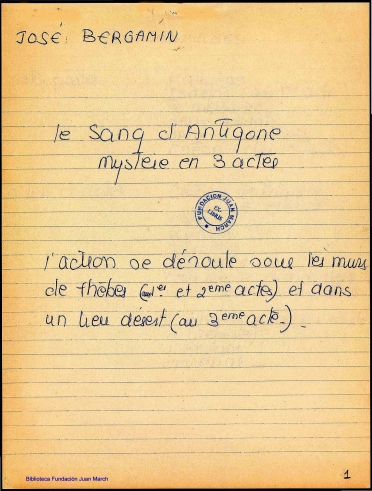 JOSÉ BERGAMIN
le Sang d'Antigone
mystere en 3 actes
FUNDACION JUAN MARCH
EX-LIBRIS
l'action se déroule sous les murs
de thèbes (1er et 2eme actes) et dans
un lieu désert (au 3eme acte).
Biblioteca Fundación Juan March
1